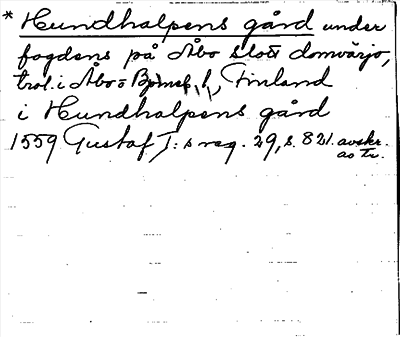 * Hundhalpens gård under
fogdens på Åbo slott domvärjo,
trol. i Åbo o Bjmeb. l, Finland
i Hundhalpens gård
1559 Gustaf I:s reg. 29, s. 821. avskr.
av Tr.